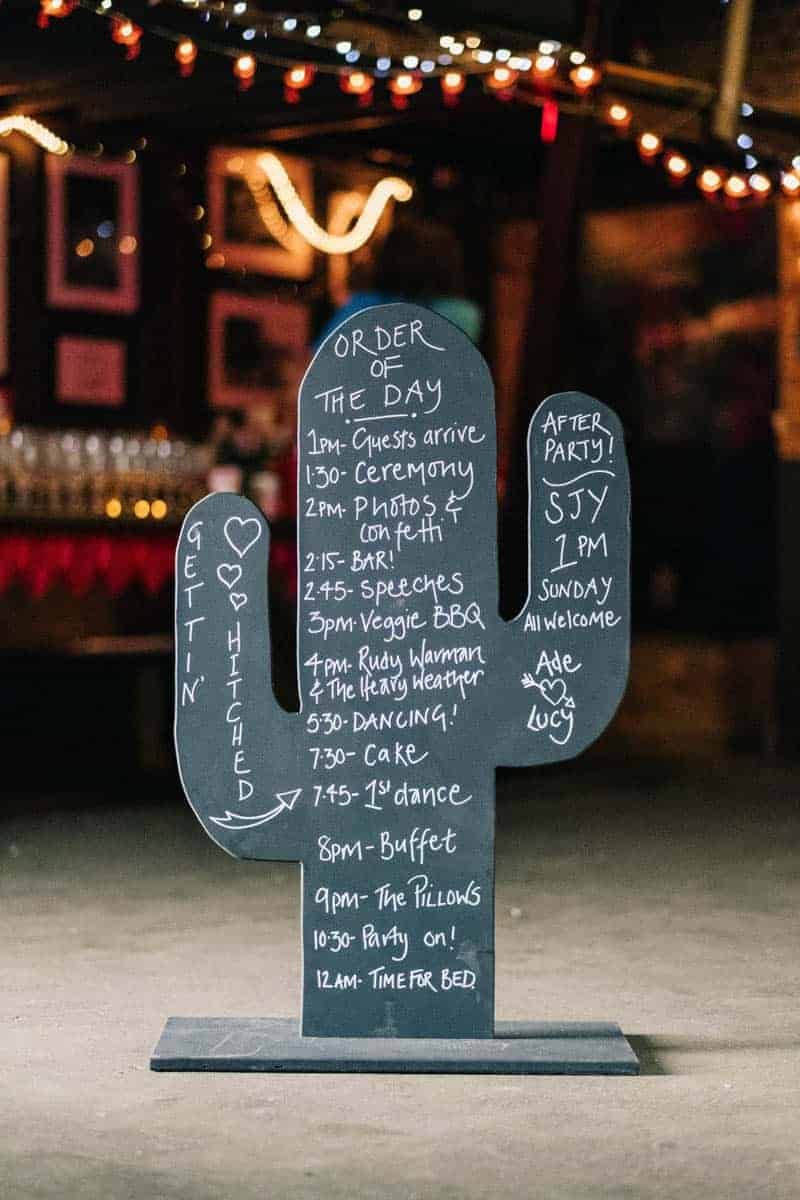 ORDER
OF
THE DAY
1PM- Guests arrive
1.30- Ceremony
2PM- Photos &
Confetti
2.15- BAR!
2.45- Speeches
3pm- Veggie BBQ
4pm- Rudy Warman
& The Heavy Weather
5.30- DANCING!
7.30- Cake
7.45- 1st dance
8pm- Buffet
9pm- The PILLOWS
10.30- Party on!
12AM- TIME FOR BED.
GETTIN'
HITCHED
AFTER
PARTY!
SJY
1PM
SUNDAY
All Welcome
Ade
Lucy